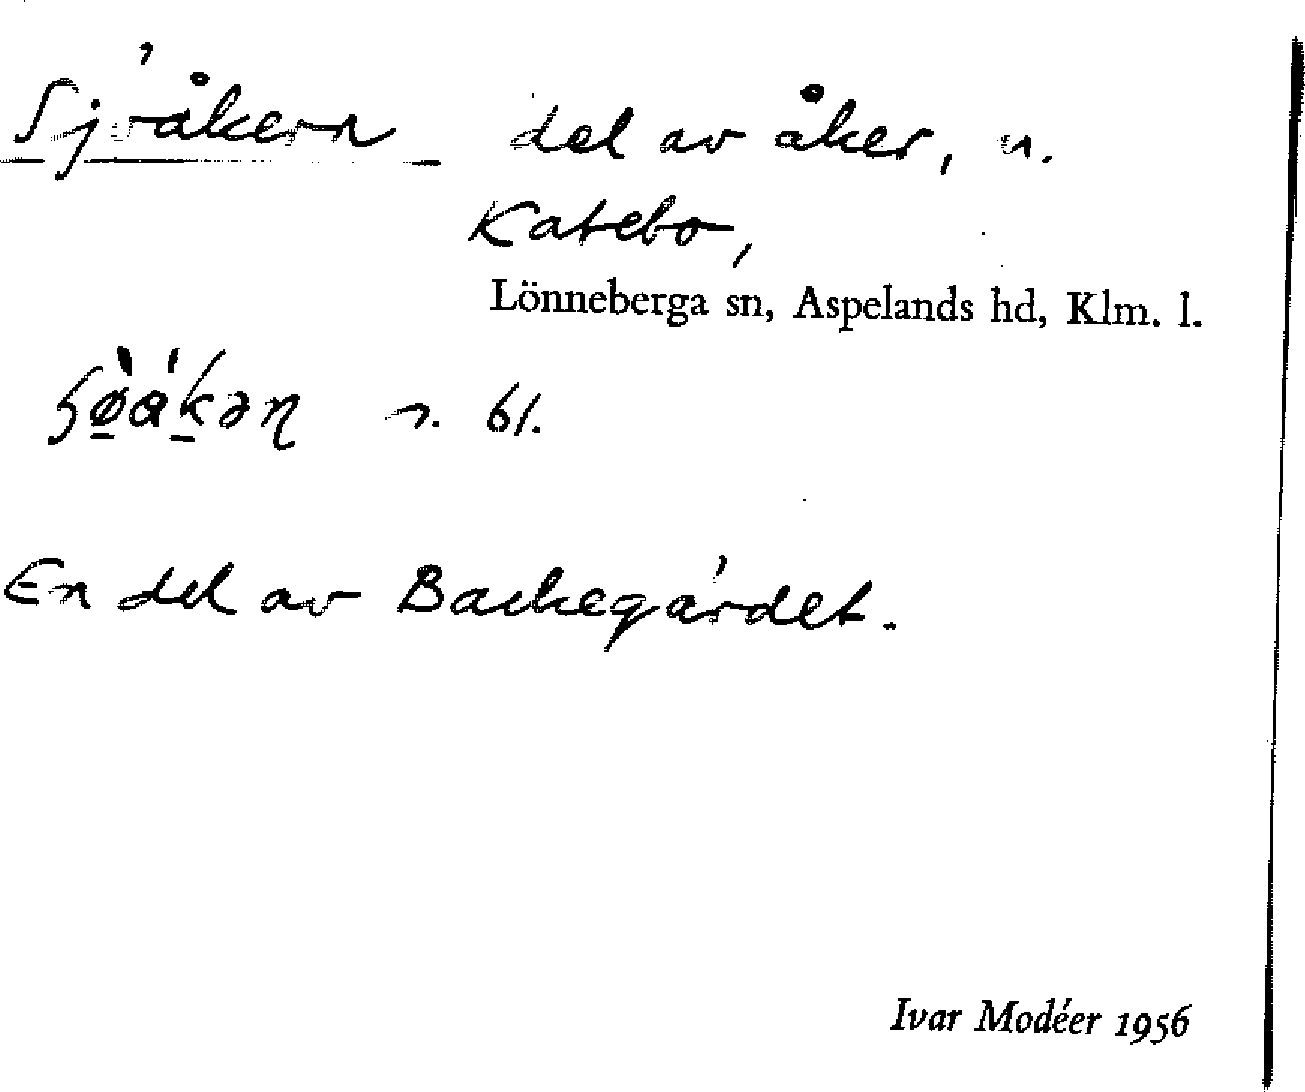 Sjöåkern del av åker, n.
Katebo,
Lönneberga sn, Aspelands hd, Klm. l.
n. 61.
En del av Backegärdet.
Ivar Modéer 1956